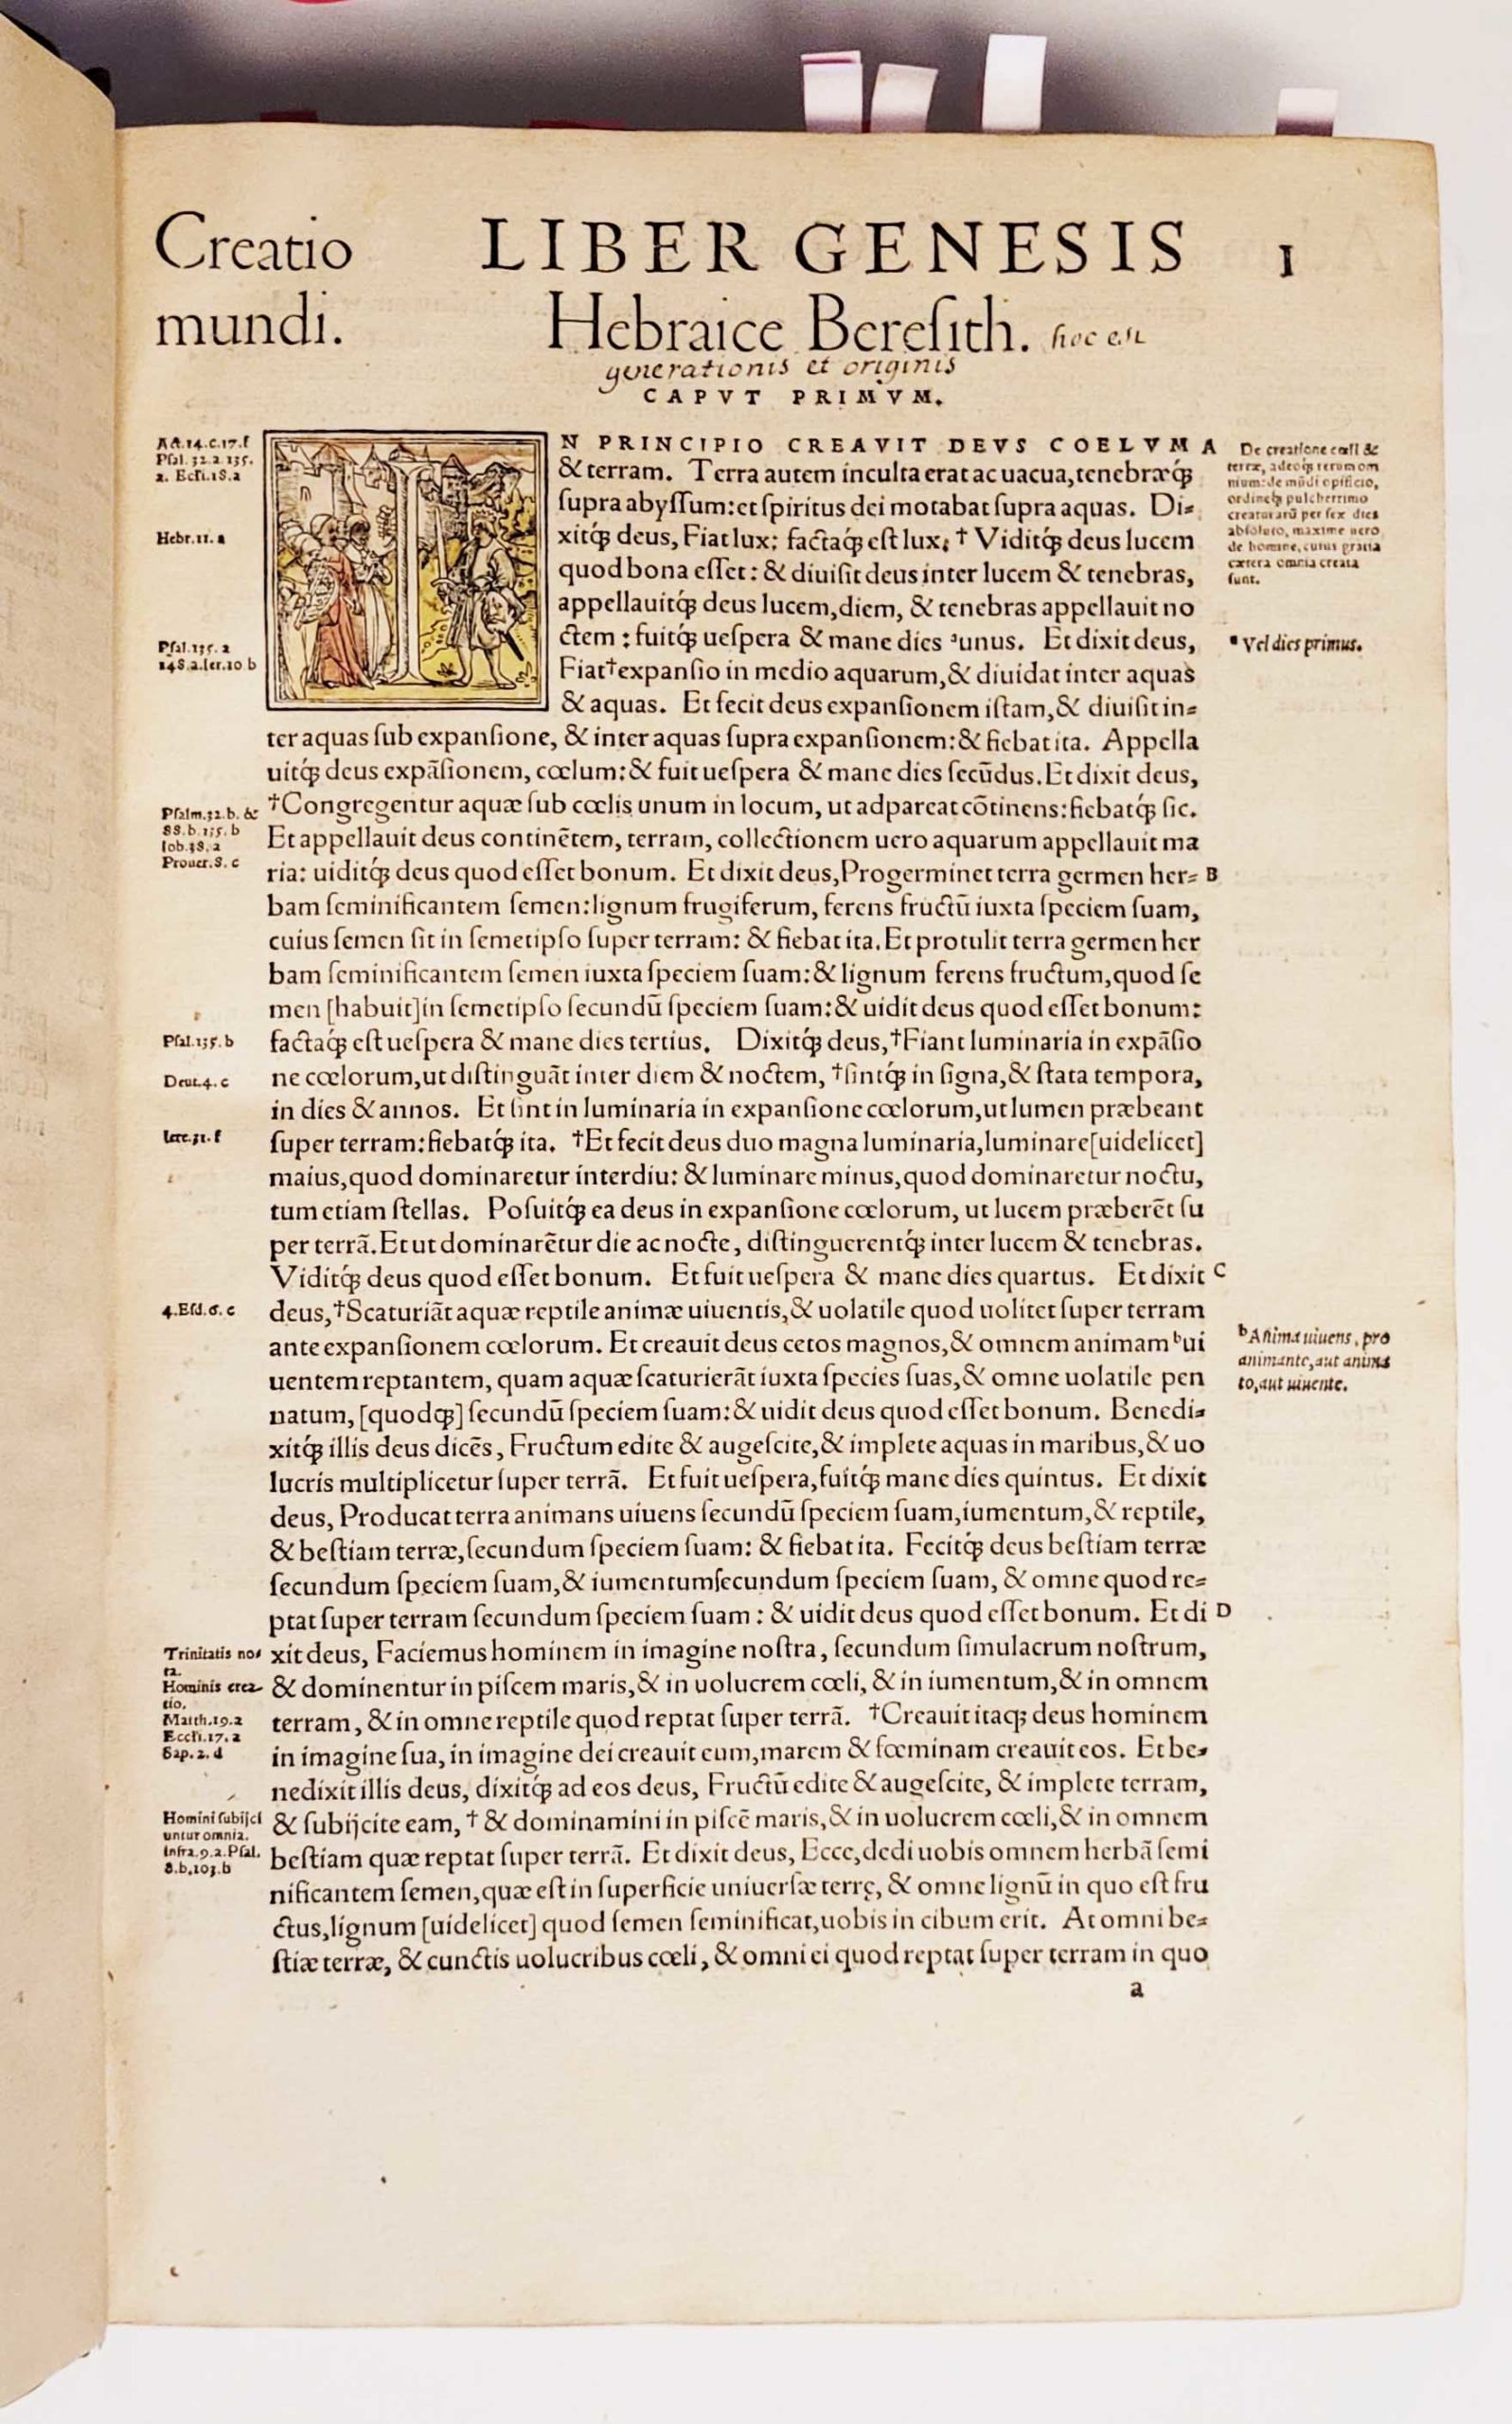 Creatio mundi.
LIBER GENESIS
1
Hebraice Bereſith. hoc est
generationis et originis
CAPVT PRIMVM.
Act.14.c.17.f
Pſal.32.a 135.
a. Ecſi.18.a
N PRINCIPIO CREAVIT DEVS COELVM A
& terram. Terra autem inculta erat ac uacua, tenebræq́ꝫ
ſupra abyſſum: et ſpiritus dei motabat ſupra aquas. Di⸗
Hebr.11.a
xitq́ꝫ deus, Fiat lux: factaq́ꝫ eſt lux: † Viditq́ꝫ deus lucem
quod bona eſſet: & diuiſit deus inter lucem & tenebras,
appellauitq́ꝫ deus lucem, diem, & tenebras appellauit no
ctem: fuitq́ꝫ ueſpera & mane dies ᵃunus. Et dixit deus,
Pſal.135.a
148.a.Ier.10 b
Fiat †expanſio in medio aquarum, & diuidat inter aquas
& aquas. Et fecit deus expanſionem iſtam, & diuiſit in⸗
ter aquas ſub expanſione, & inter aquas ſupra expanſionem: & fiebat ita. Appella
uitq́ꝫ deus expãſionem, cœlum: & fuit ueſpera & mane dies ſecũdus. Et dixit deus,
Pſalm.32.b. &
88.b.135.b
Iob.38.a
Prouer.8.c
†Congregentur aquæ ſub cœlis unum in locum, ut adpareat cõtinens: fiebatq́ꝫ ſic.
Et appellauit deus continẽtem, terram, collectionem uero aquarum appellauit ma
ria: uiditq́ꝫ deus quod eſſet bonum. Et dixit deus, Progerminet terra germen her⸗ B
bam ſeminificantem ſemen: lignum frugiferum, ferens fructũ iuxta ſpeciem ſuam,
cuius ſemen ſit in ſemetipſo ſuper terram: & fiebat ita. Et protulit terra germen her
bam ſeminificantem ſemen iuxta ſpeciem ſuam: & lignum ferens fructum, quod ſe
men [habuit] in ſemetipſo ſecundũ ſpeciem ſuam: & uidit deus quod eſſet bonum:
Pſal.135.b
factaq́ꝫ eſt ueſpera & mane dies tertius. Dixitq́ꝫ deus, †Fiant luminaria in expãſio
Deut.4.c
ne cœlorum, ut diſtinguãt inter diem & noctem, †ſintq́ꝫ in ſigna, & ſtata tempora,
in dies & annos. Et ſint in luminaria in expanſione cœlorum, ut lumen præbeant
Iere.31.f
ſuper terram: fiebatq́ꝫ ita. †Et fecit deus duo magna luminaria, luminare [uidelicet]
maius, quod dominaretur interdiu: & luminare minus, quod dominaretur noctu,
tum etiam ſtellas. Poſuitq́ꝫ ea deus in expanſione cœlorum, ut lucem præberẽt ſu
per terrã. Et ut dominarẽtur die ac nocte, diſtinguerentq́ꝫ inter lucem & tenebras.
Viditq́ꝫ deus quod eſſet bonum. Et fuit ueſpera & mane dies quartus. Et dixit C
4.Eſd.6.c
deus, †Scaturiãt aquæ reptile animæ uiuentis, & uolatile quod uolitet ſuper terram
ante expanſionem cœlorum. Et creauit deus cetos magnos, & omnem animam ᵇui
uentem reptantem, quam aquæ ſcaturierãt iuxta ſpecies ſuas, & omne uolatile pen
natum, [quodqꝫ] ſecundũ ſpeciem ſuam: & uidit deus quod eſſet bonum. Benedi⸗
xitq́ꝫ illis deus dicẽs, Fructum edite & augeſcite, & implete aquas in maribus, & uo
lucris multiplicetur ſuper terrã. Et fuit ueſpera, fuitq́ꝫ mane dies quintus. Et dixit
deus, Producat terra animans uiuens ſecundũ ſpeciem ſuam, iumentum, & reptile,
& beſtiam terræ, ſecundum ſpeciem ſuam: & fiebat ita. Fecitq́ꝫ deus beſtiam terræ
ſecundum ſpeciem ſuam, & iumentum ſecundum ſpeciem ſuam, & omne quod re⸗
ptat ſuper terram ſecundum ſpeciem ſuam: & uidit deus quod eſſet bonum. Et di D
Trinitatis no⸗
ta.
Hominis crea⸗
tio.
Matth.19.a
Eccſi.17.a
Sap.2.d
xit deus, Faciemus hominem in imagine noſtra, ſecundum ſimulacrum noſtrum,
& dominentur in piſcem maris, & in uolucrem cœli, & in iumentum, & in omnem
terram, & in omne reptile quod reptat ſuper terrã. †Creauit itaqꝫ deus hominem
in imagine ſua, in imagine dei creauit eum, marem & fœminam creauit eos. Et be⸗
nedixit illis deus, dixitq́ꝫ ad eos deus, Fructũ edite & augeſcite, & implete terram,
Homini ſubijci
untur omnia.
Infra.9.a.Pſal.
8.b.103.b
& ſubijcite eam, † & dominamini in piſcẽ maris, & in uolucrem cœli, & in omnem
beſtiam quæ reptat ſuper terrã. Et dixit deus, Ecce, dedi uobis omnem herbã ſemi
nificantem ſemen, quæ eſt in ſuperficie uniuerſæ terrę, & omne lignũ in quo eſt fru
ctus, lignum [uidelicet] quod ſemen ſeminificat, uobis in cibum erit. At omni be⸗
ſtiæ terræ, & cunctis uolucribus cœli, & omni ei quod reptat ſuper terram in quo
a
De creatione cœli &
terræ, adeoqꝫ rerum om
nium: de mũdi opificio,
ordineqꝫ pulcherrimo
creaturarũ per ſex dies
abſoluto, maxime uero
de homine, cuius gratia
cætera omnia creata
ſunt.
ᵃ Vel dies primus.
ᵇ Anima uiuens, pro
animante, aut anima
to, aut uiuente.